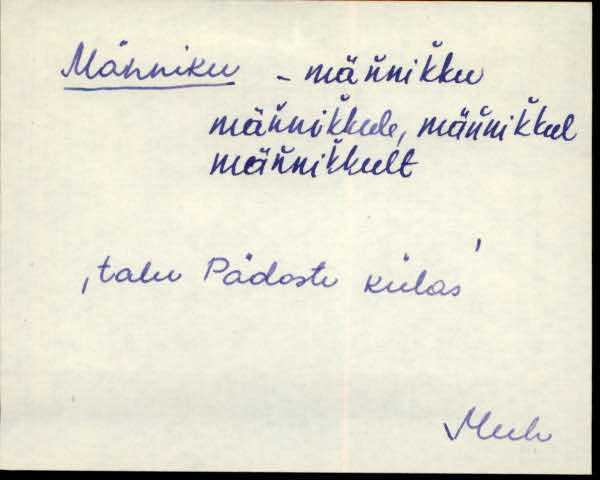 Männiku - män̆nik̆ku
män̆nik̆kule, män̆nik̆kul
män̆nik̆kult
‚talu Pädaste külas'
Muh